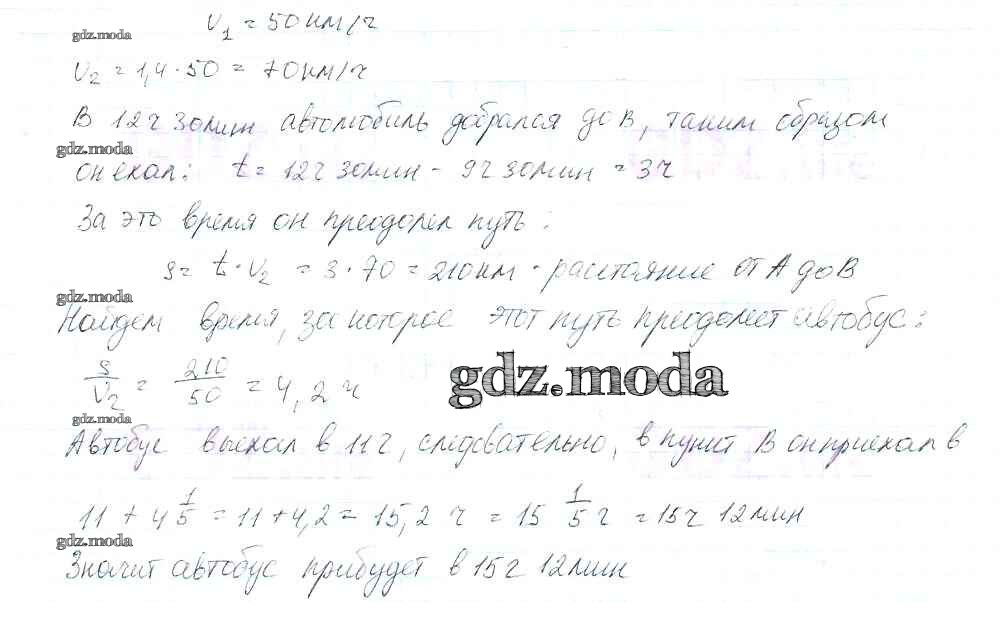 V₁ = 50 км/ч
gdz.moda
V₂ = 1,4 · 50 = 70 км/ч
В 12ч 30мин автомобиль добрался до В, таким образом
gdz.moda
он ехал: t = 12ч 30мин - 9ч 30мин = 3ч
За это время он преодолел путь:
s = t · V₂ = 3 · 70 = 210 км - расстояние от А до В
gdz.moda
Найдем время, за которое этот путь преодолеет автобус:
s/V₂ = 210/50 = 4,2 ч
gdz.moda
gdz.moda
Автобус выехал в 11ч, следовательно, в пункт В он приехал в
11 + 4 1/5 = 11 + 4,2 = 15,2 ч = 15 1/5 ч = 15ч 12мин
gdz.moda
Значит автобус прибудет в 15ч 12мин